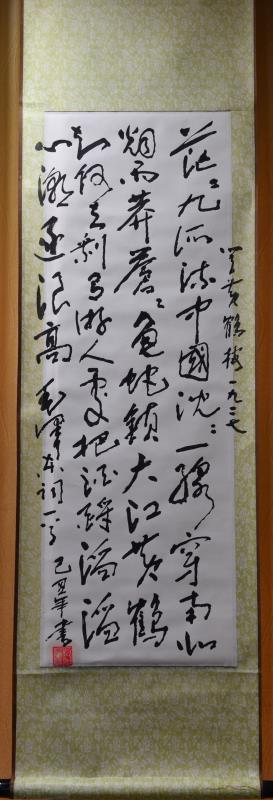 登黄鶴楼 一九二七
茫〻九派流中國沈〻一線穿南北
烟雨莽蒼〻龜蛇鎖大江黄鶴
知何去剩有游人處把酒酹滔滔
心潮逐浪高 毛澤東詞一首 己丑年書